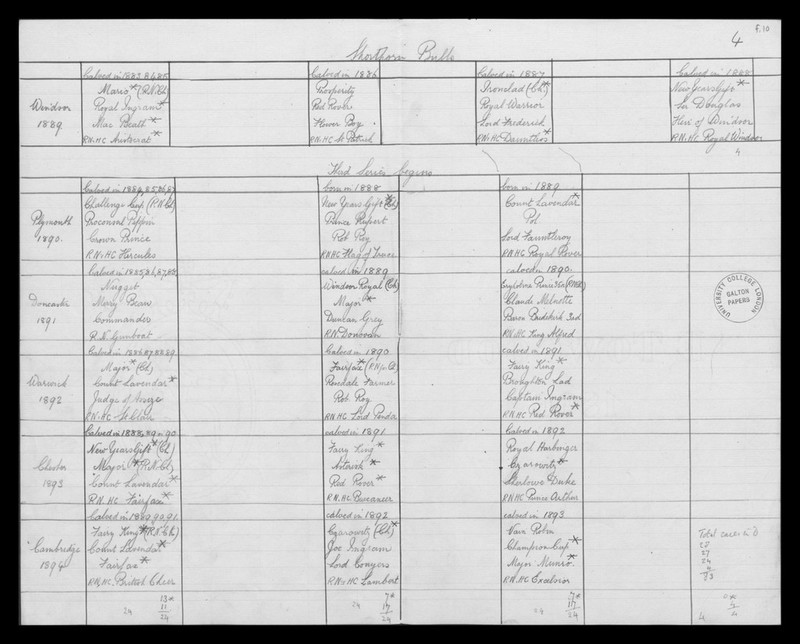 f.10
4
Shorthorn Bulls
Calved in 1883.84.85 Calved in 1886 Calved in 1887 Calved in 1888
Mario* (R.N.Ch) Prosperity Ironclad (Ch)* New Years Gift*
Windsor Royal Ingram* Red Rover Royal Warrior Sir Douglas
1889 Flower Boy Lord Frederick Heir of Windsor
R.N.HC Aristocrat* R.N.HC St Patrick R.N.HC R.N.HC Royal Windsor
4
Had Series begins
Calved in born in 1888 born in 1889
Challenge Cup (R.N.Ch) New Years Gift* (Ch) Count Lavendar*
Plymouth Proconsul Prince Rupert Pol
1890. Crown Prince Rob Roy Lord Fauntleroy
R.N.HC Hercules R.N.HC Flag of Truce R.N.HC Royal Rover
Calved in 1885,86,87,88 calved in 1889 calved in 1890
Nugget Windsor Royal (Ch)
Doncaster Major* Claude Melnotte
1891 Commander Duncan Grey Baron 3rd
R.N. Gunboat R.N. Donovan R.N.HC King Alfred
Calved in 1886.87.88.89 Calved in 1890 calved in 1891
Major* (Ch) Fairfax* Fairy King*
Warwick Count Lavendar* Farmer Broughton Lad
1892 Judge of Assize Rob Roy Captain Ingram
R.N.HC R.N.HC Lord R.N.HC Red Rover*
Calved in 1888,89,90 calved in 1891 Calved in 1892
New Years Gift* (Ch) Fairy King* Royal Harbinger
Chester Major* (R.N.Ch) Asterisk* Czarowitz*
1893 Count Lavendar* Red Rover* Sherlowe Duke
R.N.HC Fairfax* R.N.HC Buccaneer R.N.HC Prince Arthur
Calved in 1889,90,91. calved in 1892 calved in 1893
Fairy King* (R.N.Ch) Czarowitz (Ch)* Vain Robin
Cambridge Count Lavendar* Joe Ingram Champion Cup*
1894 Fairfax* Lord Conyers Major Munro*
R.N.HC British Chief R.N.HC Lambert R.N.HC Excelsior
Total
28
27
24
4
83
13* 7* 7* 0*
24 11 24 17 24 17 4
24 24 24 4 4
UNIVERSITY COLLEGE LONDON
GALTON
PAPERS